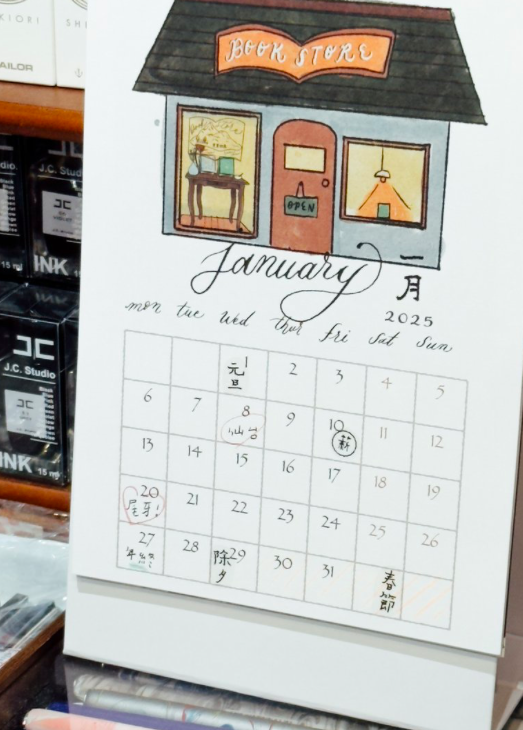 KIORI
AILOR
J.C. Studio
INK 15 ml
J.C. Studio
J.C. Studio
INK 15 ml
BOOK STORE
OPEN
January
一月
2025
mon tue wed thur fri sat sun
1 2 3 4 5
元旦
6 7 8 9 10 11 12
仙台
薪
13 14 15 16 17 18 19
20 21 22 23 24 25 26
尾牙!
27 28 29 30 31
除夕
春節